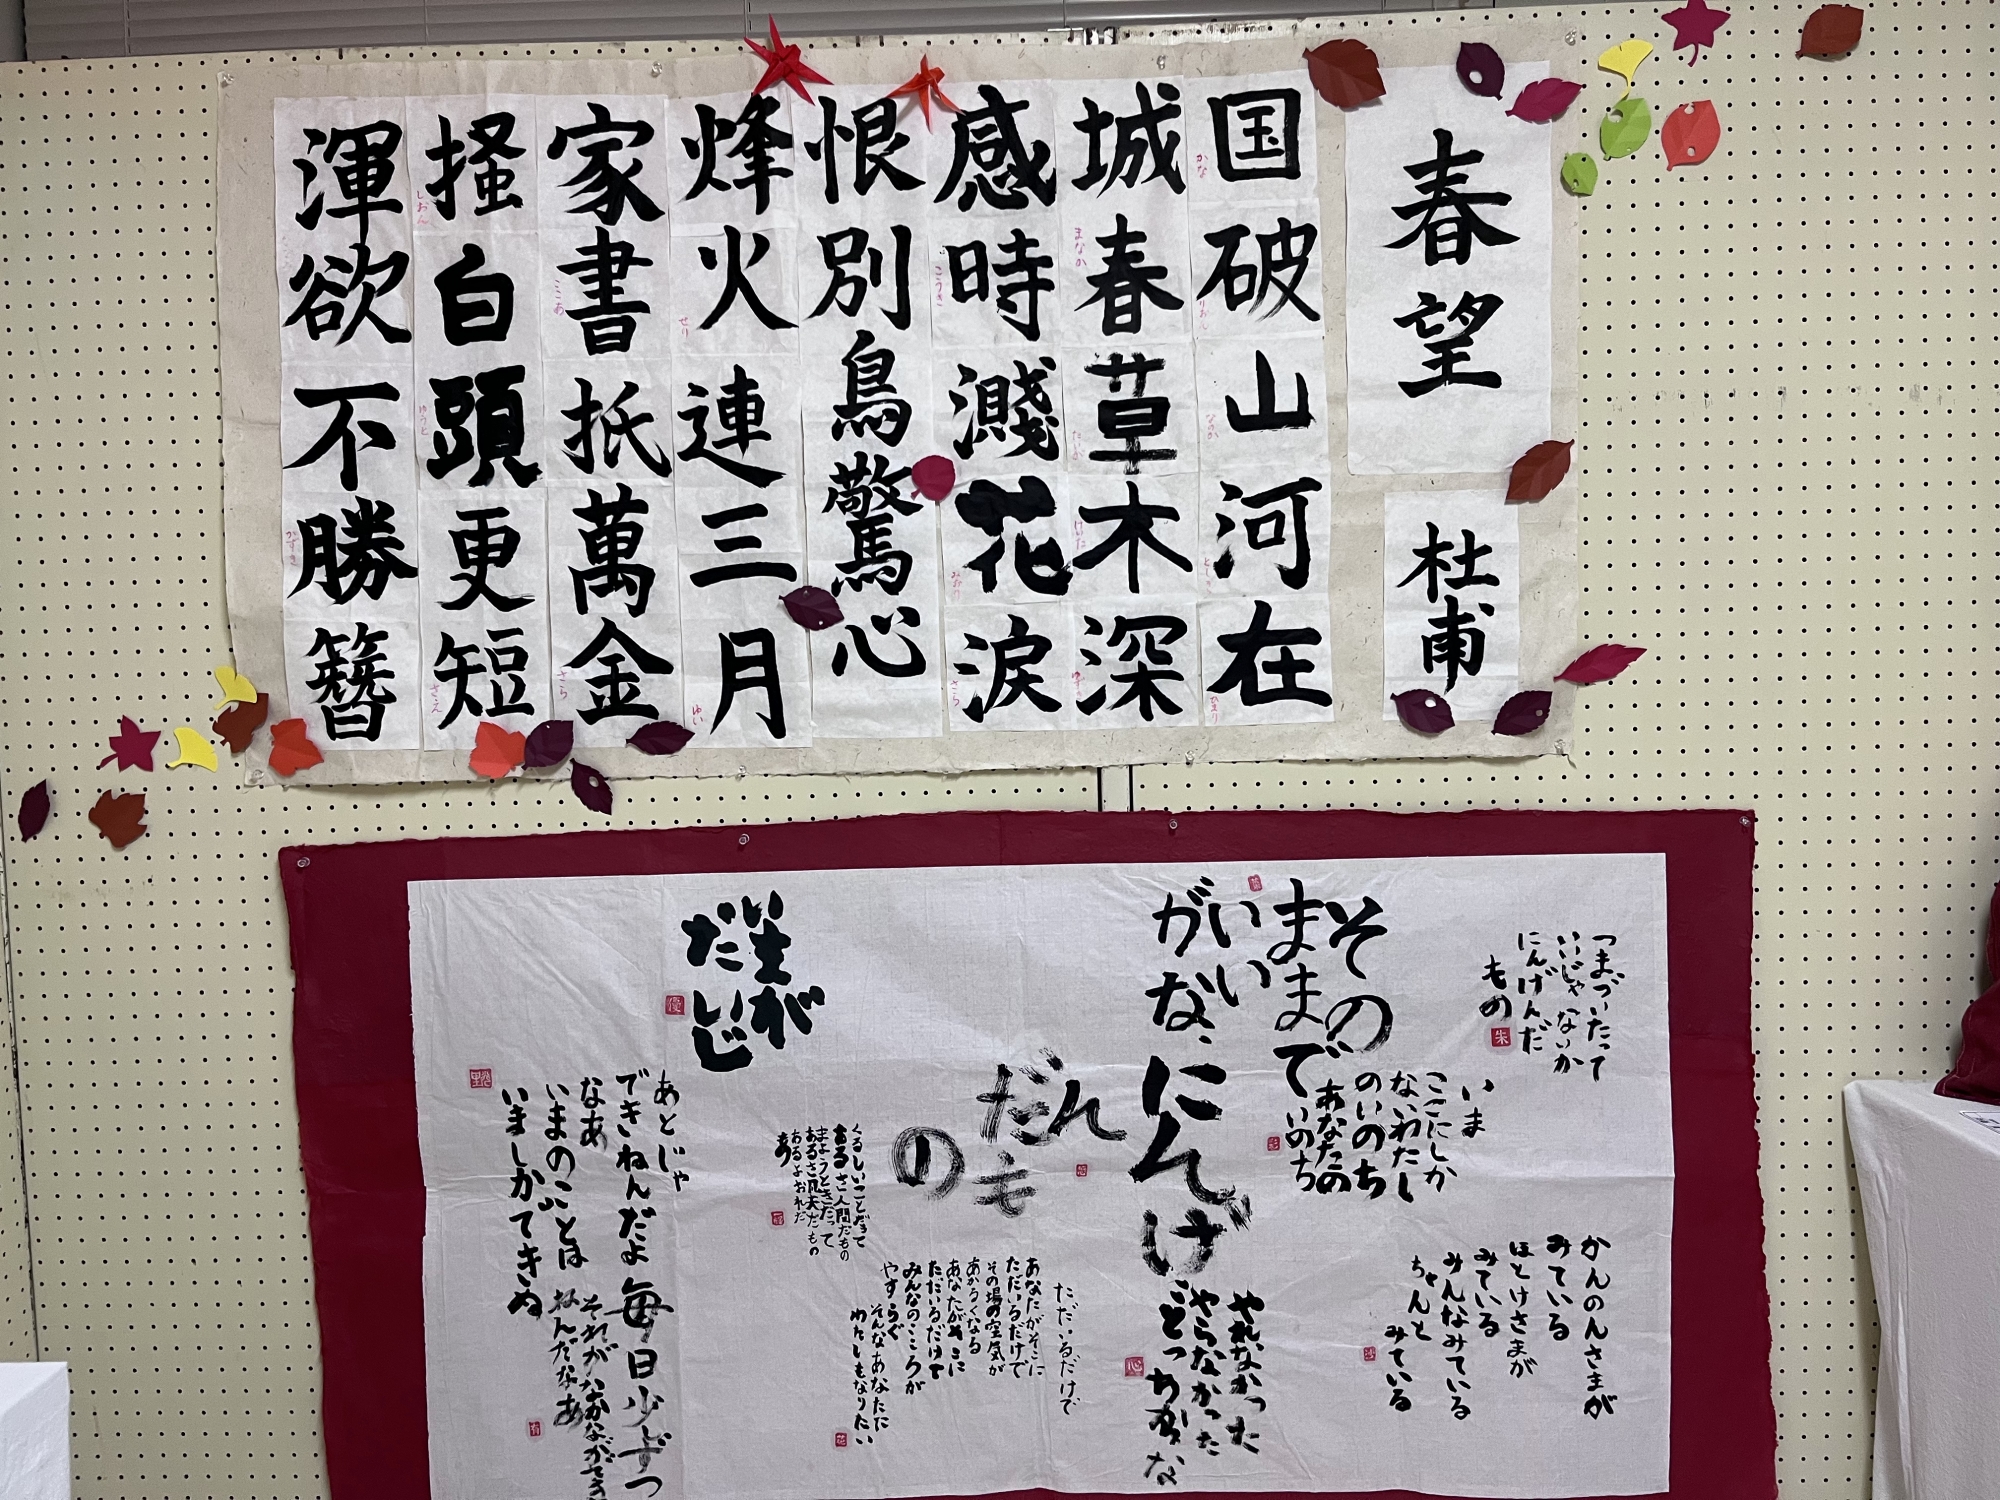 春望
杜甫
国破山河在
城春草木深
感時濺花涙
恨別鳥驚心
烽火連三月
家書抵萬金
搔白頭更短
渾欲不勝簪
かな
りおん
なのか
ひまり
まなか
けいた
こうき
みおり
さら
せり
ゆい
ここあ
さら
しおん
ゆうと
さえ
かずき
つまづいたって
いいじゃないか
にんげんだ
もの
朱
いま
ここにしか
ないわたし
のいのち
あなたの
いのち
かんのんさまが
みている
ほとけさまが
みている
みんなみている
ちゃんと
みている
沙
その
ままで
いい
がな
やれなかった
やらなかった
どっちかな
心
にんげ
んだも
の
ただいるだけで
あなたがそこに
ただいるだけで
その場の空気が
あかるくなる
あなたがそこに
ただいるだけで
みんなのこころが
やすらぐ
そんなあなたに
わたしもなりたい
花
くるしいことだって
あるさ人間だもの
まようときだって
あるさ凡夫だもの
あやまちだって
いまが
だいじ
優
あとじゃ
できねんだよ
なあ
いまのことは
いましかできぬ
毎日少しずつ
それがなかなかでき
ねんだなあ
有